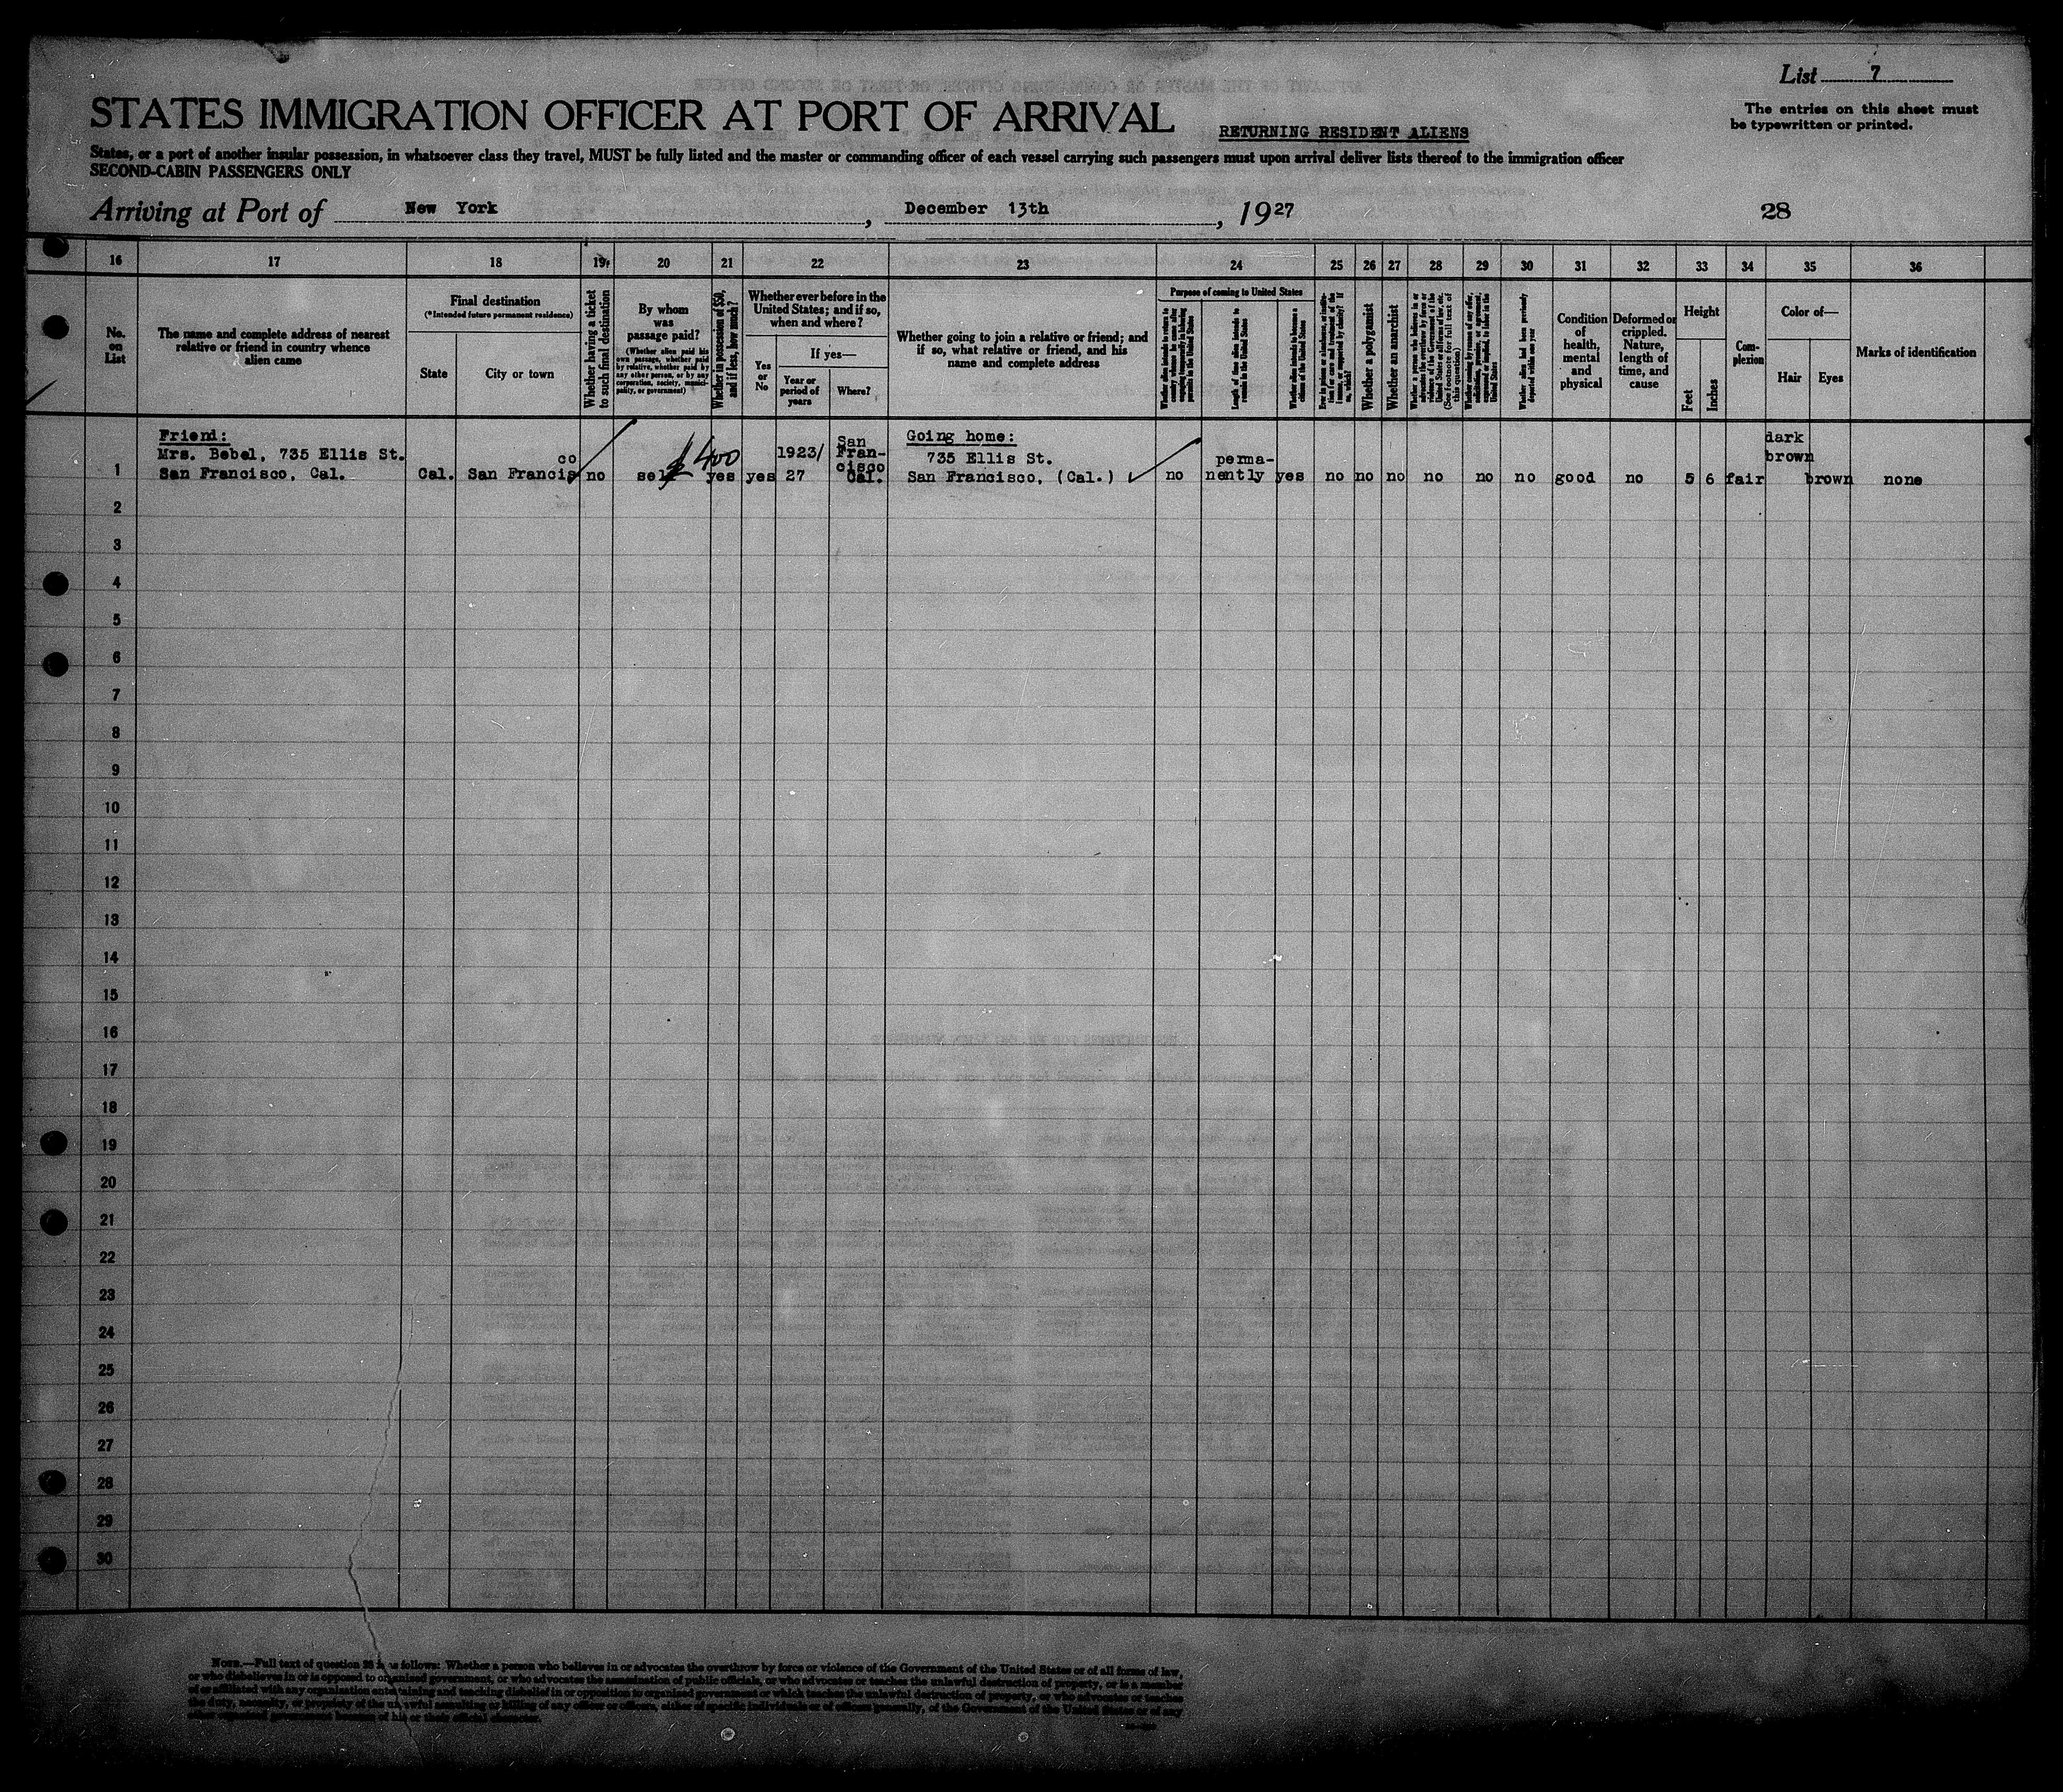 List 7
The entries on this sheet must
be typewritten or printed.
STATES IMMIGRATION OFFICER AT PORT OF ARRIVAL
RETURNING RESIDENT ALIENS
States, or a port of another insular possession, in whatsoever class they travel, MUST be fully listed and the master or commanding officer of each vessel carrying such passengers must upon arrival deliver lists thereof to the immigration officer
SECOND-CABIN PASSENGERS ONLY
Arriving at Port of New York, December 13th, 1927
28
16 17 18 19 20 21 22 23 24 25 26 27 28 29 30 31 32 33 34 35 36
No.
on
List
The name and complete address of nearest
relative or friend in country whence
alien came
Final destination
(*Intended future permanent residence)
State
City or town
Whether having a ticket
to such final destination
By whom
was
passage paid?
(Whether alien paid his
own passage, whether paid
by relative, whether paid by
any other person, or by any
corporation, society, munici-
pality, or government)
Whether in possession of $50,
and if less, how much?
Whether ever before in the
United States; and if so,
when and where?
Yes
or
No
If yes—
Year or
period of
years
Where?
Whether going to join a relative or friend; and
if so, what relative or friend, and his
name and complete address
Purpose of coming to United States
Whether alien intends to return to
country whence he came after
engaging temporarily in laboring
pursuits in United States
Length of time alien intends to
remain in the United States
Whether alien intends to become a
citizen of the United States
Whether a polygamist
Whether an anarchist
(See footnote for full text of
this question)
Whether alien had been previously
deported within one year
Condition
of
health,
mental
and
physical
Deformed or
crippled.
Nature,
length of
time, and
cause
Height
Feet
Inches
Com-
plexion
Color of—
Hair
Eyes
Marks of identification
Friend:
Mrs. Bebel, 735 Ellis St.
1 San Francisco, Cal.
Cal.
co
San Francis
no
self
$400
yes
yes
1923/
27
San
Fran-
cisco
Cal.
Going home:
735 Ellis St.
San Francisco, (Cal.)
no
perma-
nently
yes
no no no no no no good no 5 6 fair
dark
brown
brown
none
2
3
4
5
6
7
8
9
10
11
12
13
14
15
16
17
18
19
20
21
22
23
24
25
26
27
28
29
30
NOTE.—Full text of question 28 is as follows: Whether a person who believes in or advocates the overthrow by force or violence of the Government of the United States or of all forms of law,
or who disbelieves in or is opposed to organized government, or who advocates the assassination of public officials, or who advocates or teaches the unlawful destruction of property, or is a member
of or affiliated with any organization entertaining and teaching disbelief in or opposition to organized government or which teaches the unlawful destruction of property, or who advocates or teaches
the duty, necessity, or propriety of the unlawful assaulting or killing of any officer or officers, either of specific individuals or of officers generally, of the Government of the United States or of any
other organized government because of his or their official character.